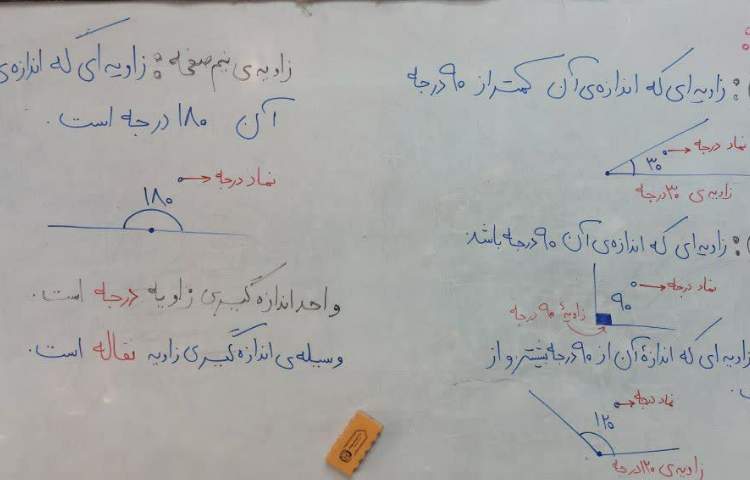 زاویه‌ای که اندازه‌ی آن کمتر از ۹۰ درجه
نماد درجه
۳۰°
زاویه‌ی ۳۰ درجه
زاویه‌ای که اندازه‌ی آن ۹۰ درجه باشد
نماد درجه
۹۰°
زاویهٔ ۹۰ درجه
زاویه‌ای که اندازهٔ آن از ۹۰ درجه بیشتر و از
نماد درجه
۱۲۰°
زاویه‌ی ۱۲۰ درجه
زاویه‌ی نیم‌صفحه : زاویه‌ای که اندازه‌ی
آن ۱۸۰ درجه است.
نماد درجه
۱۸۰°
واحد اندازه گیری زاویه درجه است.
وسیله‌ی اندازه گیری زاویه نقاله است.